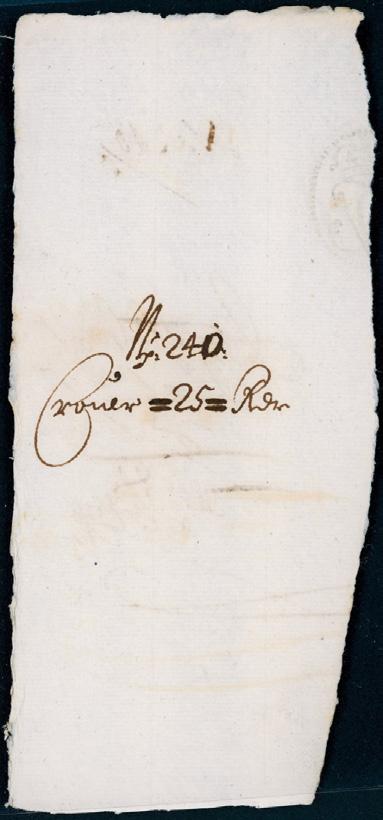 No: 240.
Croner =25= Rdr